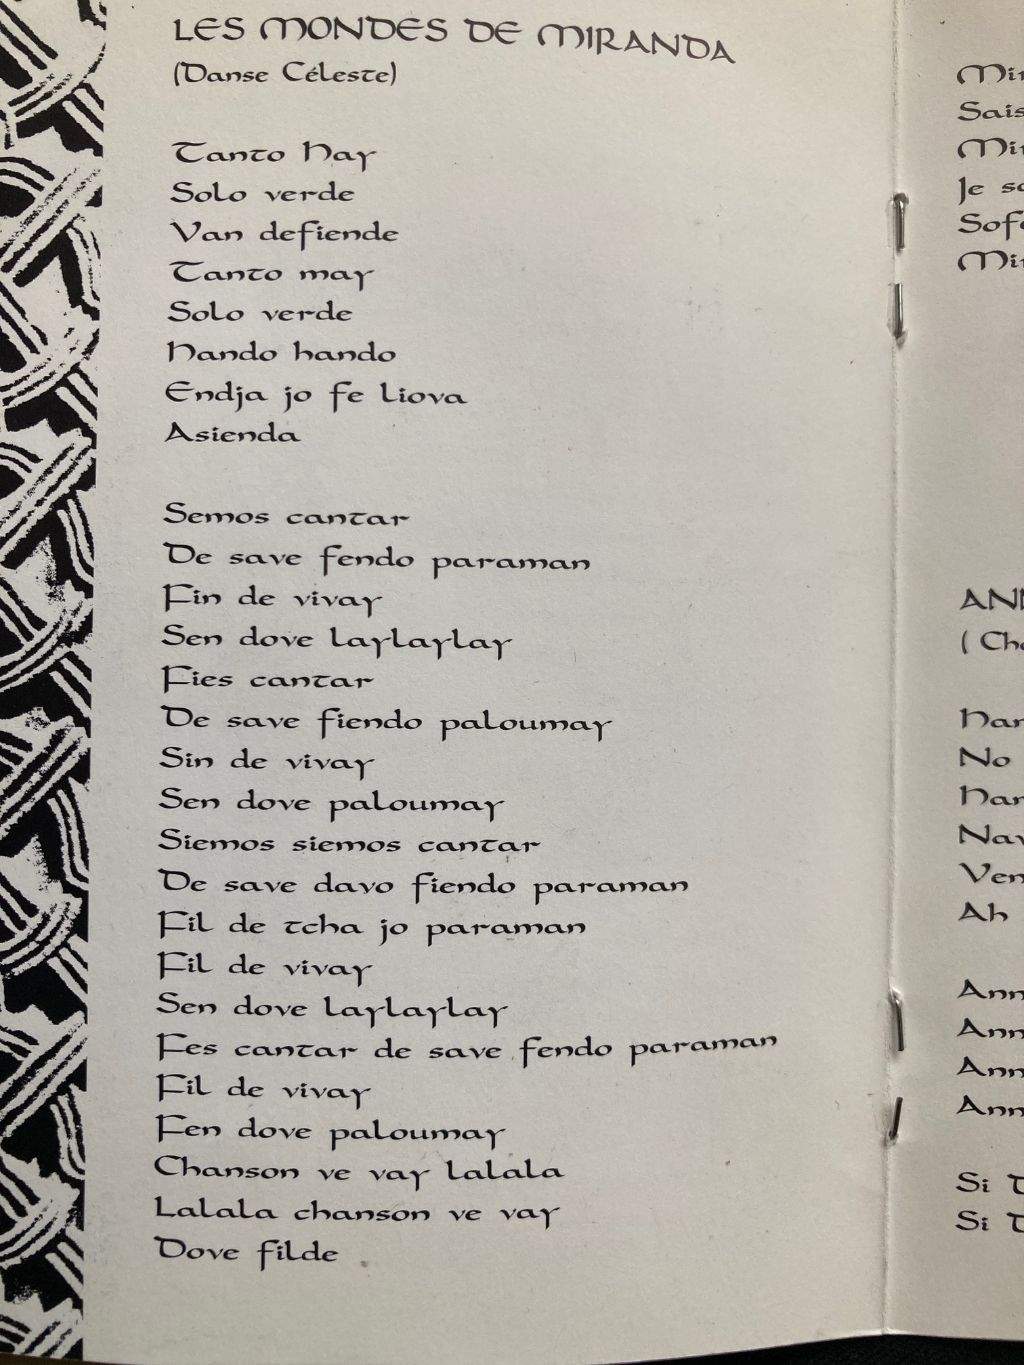 LES MONDES DE MIRANDA
(Danse Céleste)
Tanto Hay
Solo verde
Van defiende
Tanto may
Solo verde
Hando hando
Endja jo fe liova
Asienda
Semos cantar
De save fendo paraman
Fin de vivay
Sen dove laylaylay
Fies cantar
De save fiendo paloumay
Sin de vivay
Sen dove paloumay
Siemos siemos cantar
De save davo fiendo paraman
Fil de tcha jo paraman
Fil de vivay
Sen dove laylaylay
Fes cantar de save fendo paraman
Fil de vivay
Fen dove paloumay
Chanson ve vay lalala
Lalala chanson ve vay
Dove filde
Je
No
Ah
Si
Si